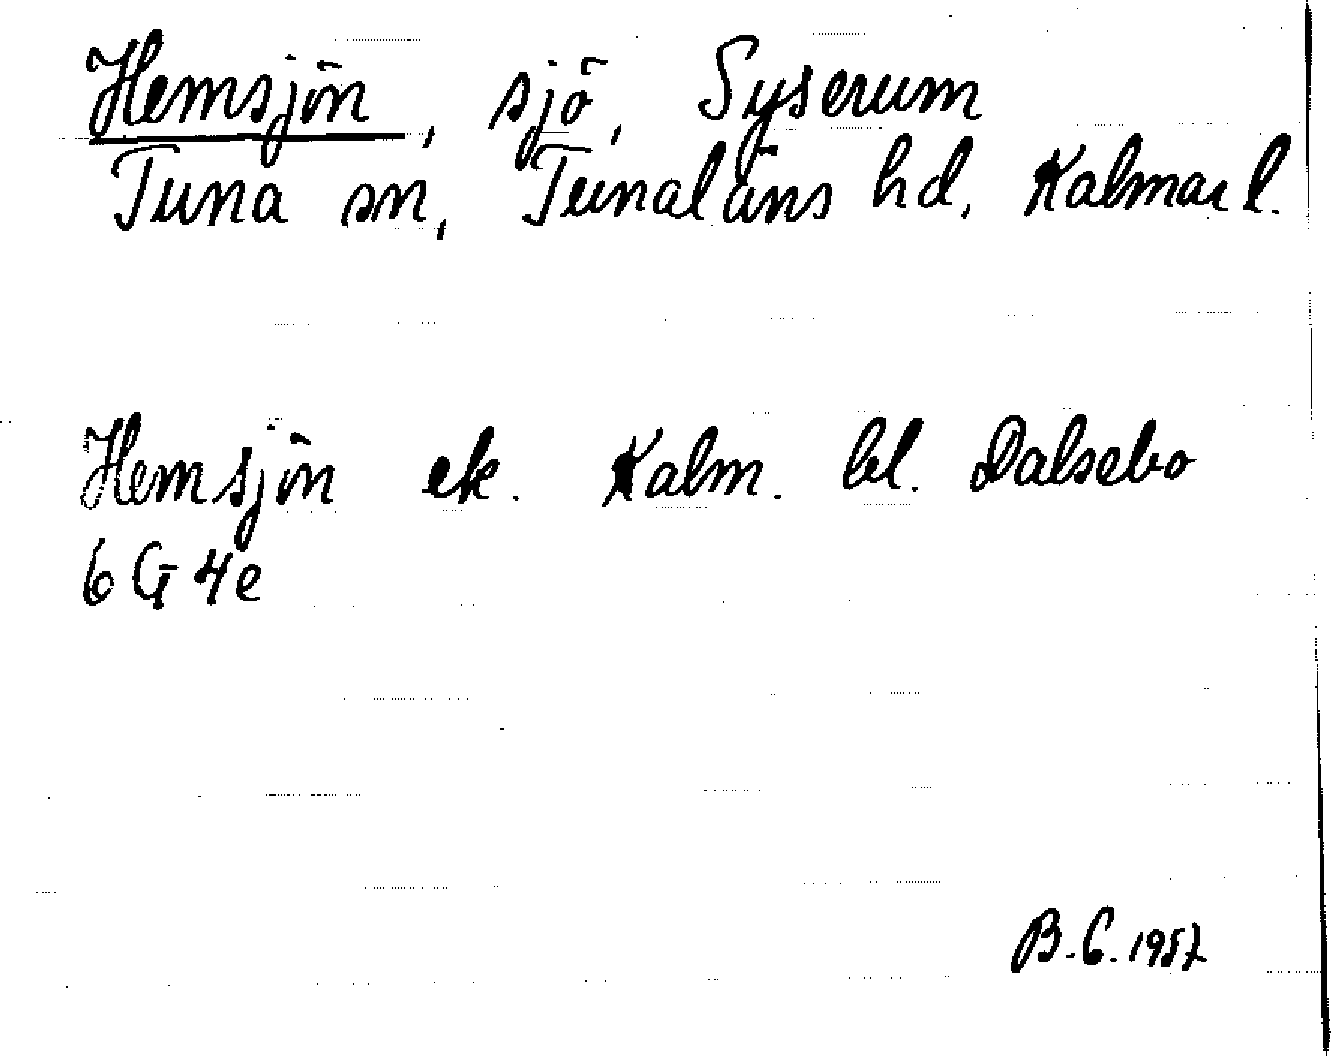 Hemsjön, sjö, Syserum
Tuna sn, Tunaläns hd, Kalmar l.
Hemsjön ek. Kalm. bl. Dalsebo
6 G 4e
B.C. 1957